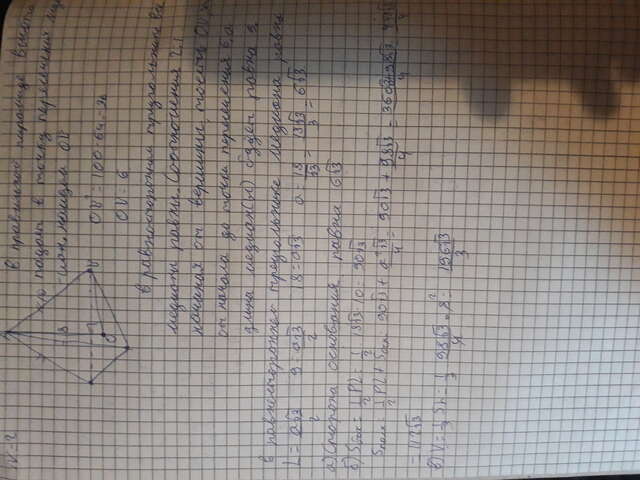 N-2
8
10
O
V
в правильной пирамиде высота
падает в точку пересечения мед
-иан. найдём OV
OV² = 100-64 = 36
OV = 6
в равностороннем треугольнике все
медианы равны. Соотношения 2:1
начиная от вершины, тоесть OV
от начала до точки пересечения 6, а
длина медиан(ы) будет равна 9
в равностороннем треугольнике медиана равна
L = a√3/2 9 = a√3/2 18 = a√3 a = 18/√3 = 18√3/3 = 6√3
а) Сторона основания равна 6√3
б) Sбок = 1/2 PL = 1/2 18√3·10 = 90√3
Sполн = 1/2 PL + Sосн 90√3 + a²√3/4 = 90√3 + 98√3/4 = 360√3+98√3/4
= 112√3
в) V = 1/3 Sh = 1/3 98√3/4 · 8² = 196√3/3